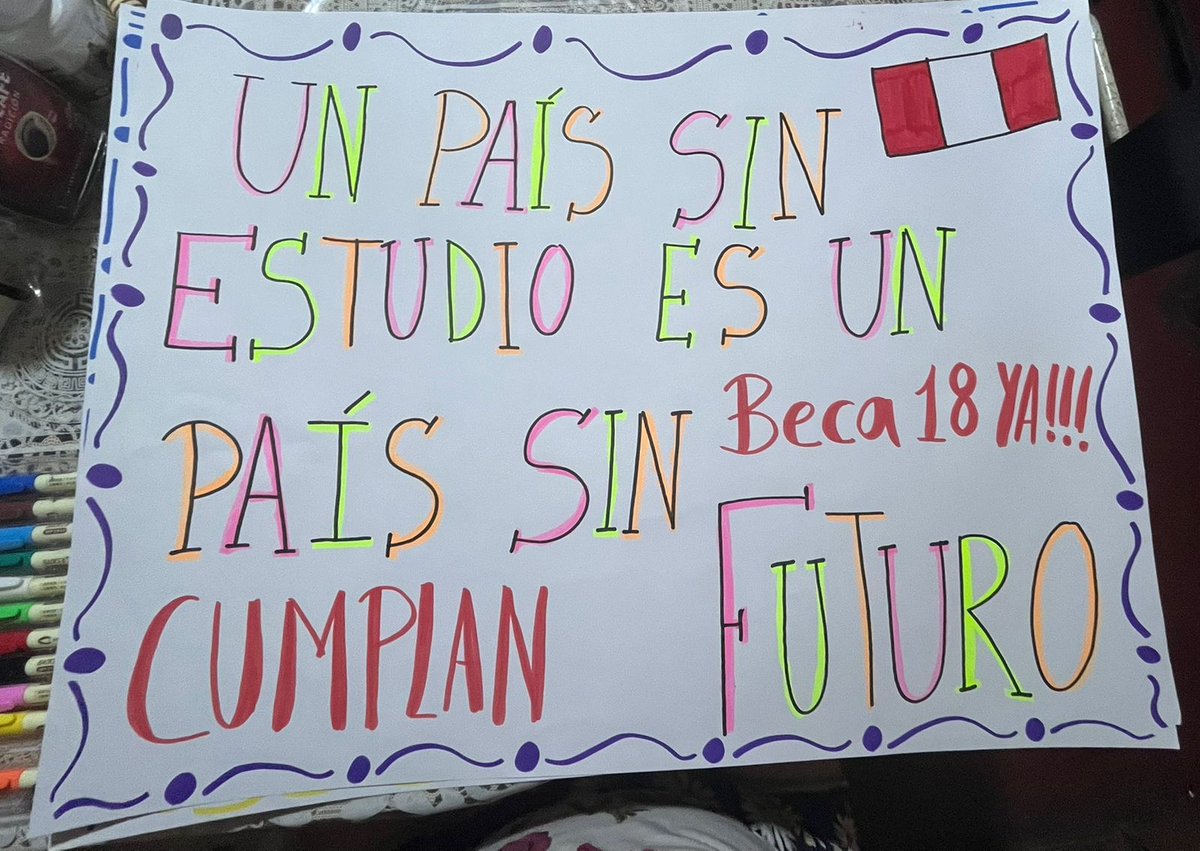 UN PAÍS SIN
ESTUDIO ES UN
PAÍS SIN
FUTURO
Beca 18 YA!!!
CUMPLAN
CAFÉ